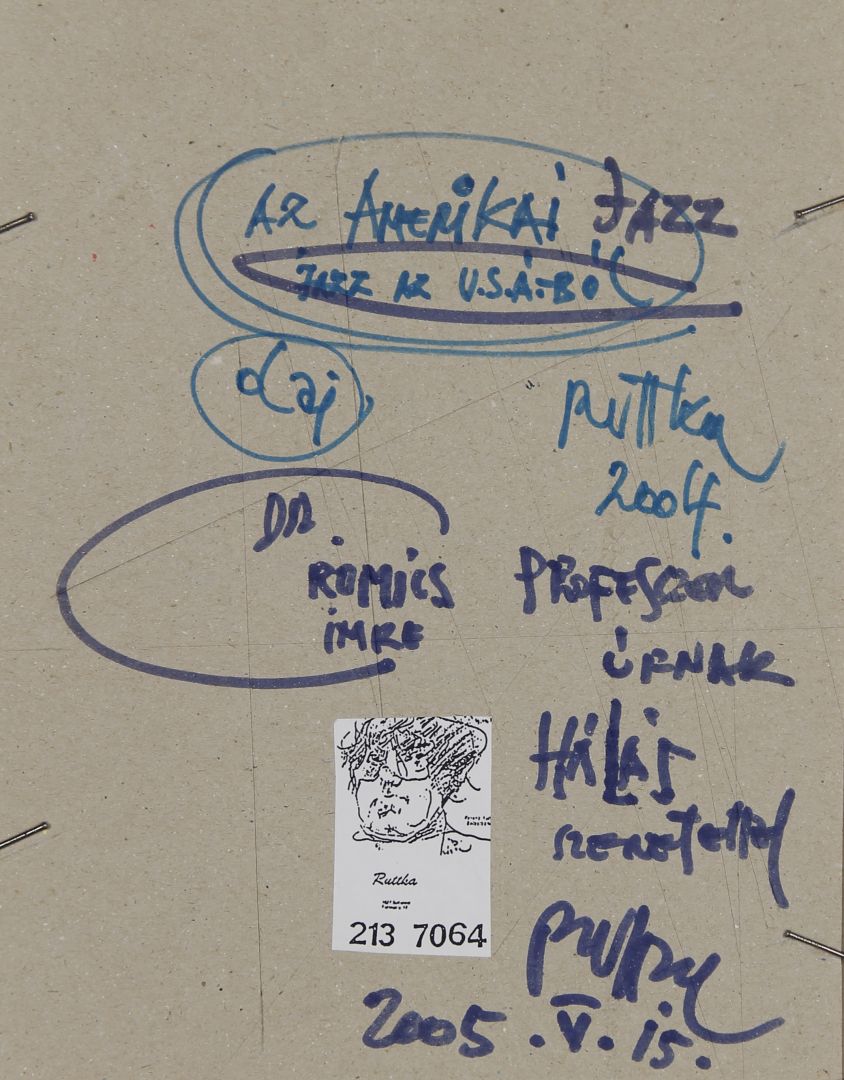 AZ AMERIKAI JAZZ
JAZZ AZ U.S.A.-BÓL
olaj
Ruttka
2004.
DR
ROMICS
IMRE
PROFESSZOR
ÚRNAK
HÁLÁS
SZERETETTEL
Ruttka
2005.V.15.
Ruttka
213 7064